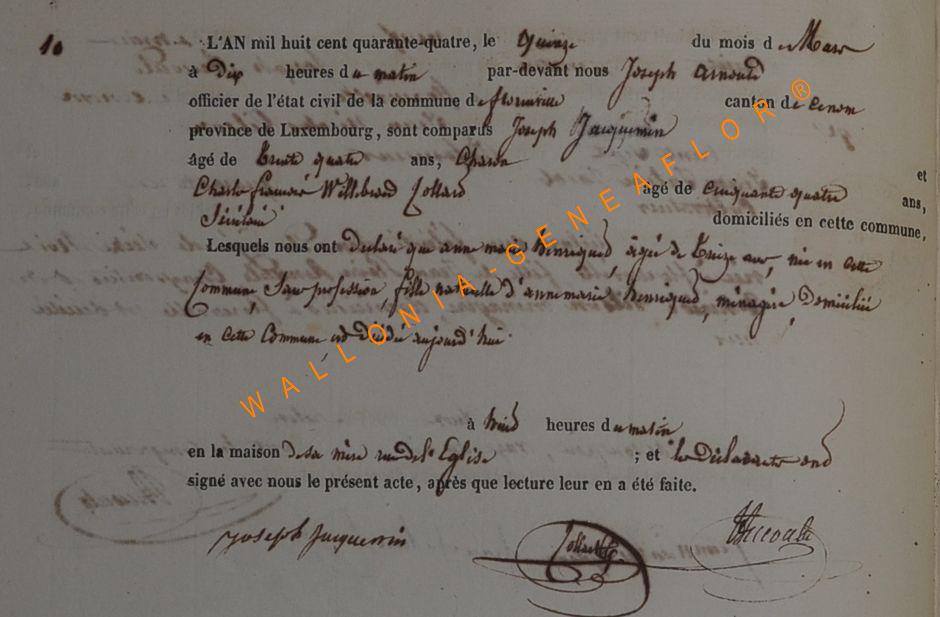 10
L'AN mil huit cent quarante-quatre, le quinze du mois de Mars
à Dix heures du matin par-devant nous Joseph Arnould
officier de l'état civil de la commune de florenville canton de
province de Luxembourg, sont comparus Joseph Jacquemin
âgé de trente quatre ans, Charon et
Charles françois Willibrord Collard âgé de cinquante quatre ans,
domiciliés en cette commune,
Lesquels nous ont déclaré que anne marie henriquet, agée de treize ans, née en cette
Commune, Sans profession, fille naturelle d'anne marie henriquet, ménagère, domiciliée
en cette Commune est décédée aujourd'hui
à huit heures du matin
en la maison de sa mère rue de l'Eglise ; et les déclarants ont
signé avec nous le présent acte, après que lecture leur en a été faite.
Joseph Jacquemin Collard
WALLONIA-GENEAFLOR®